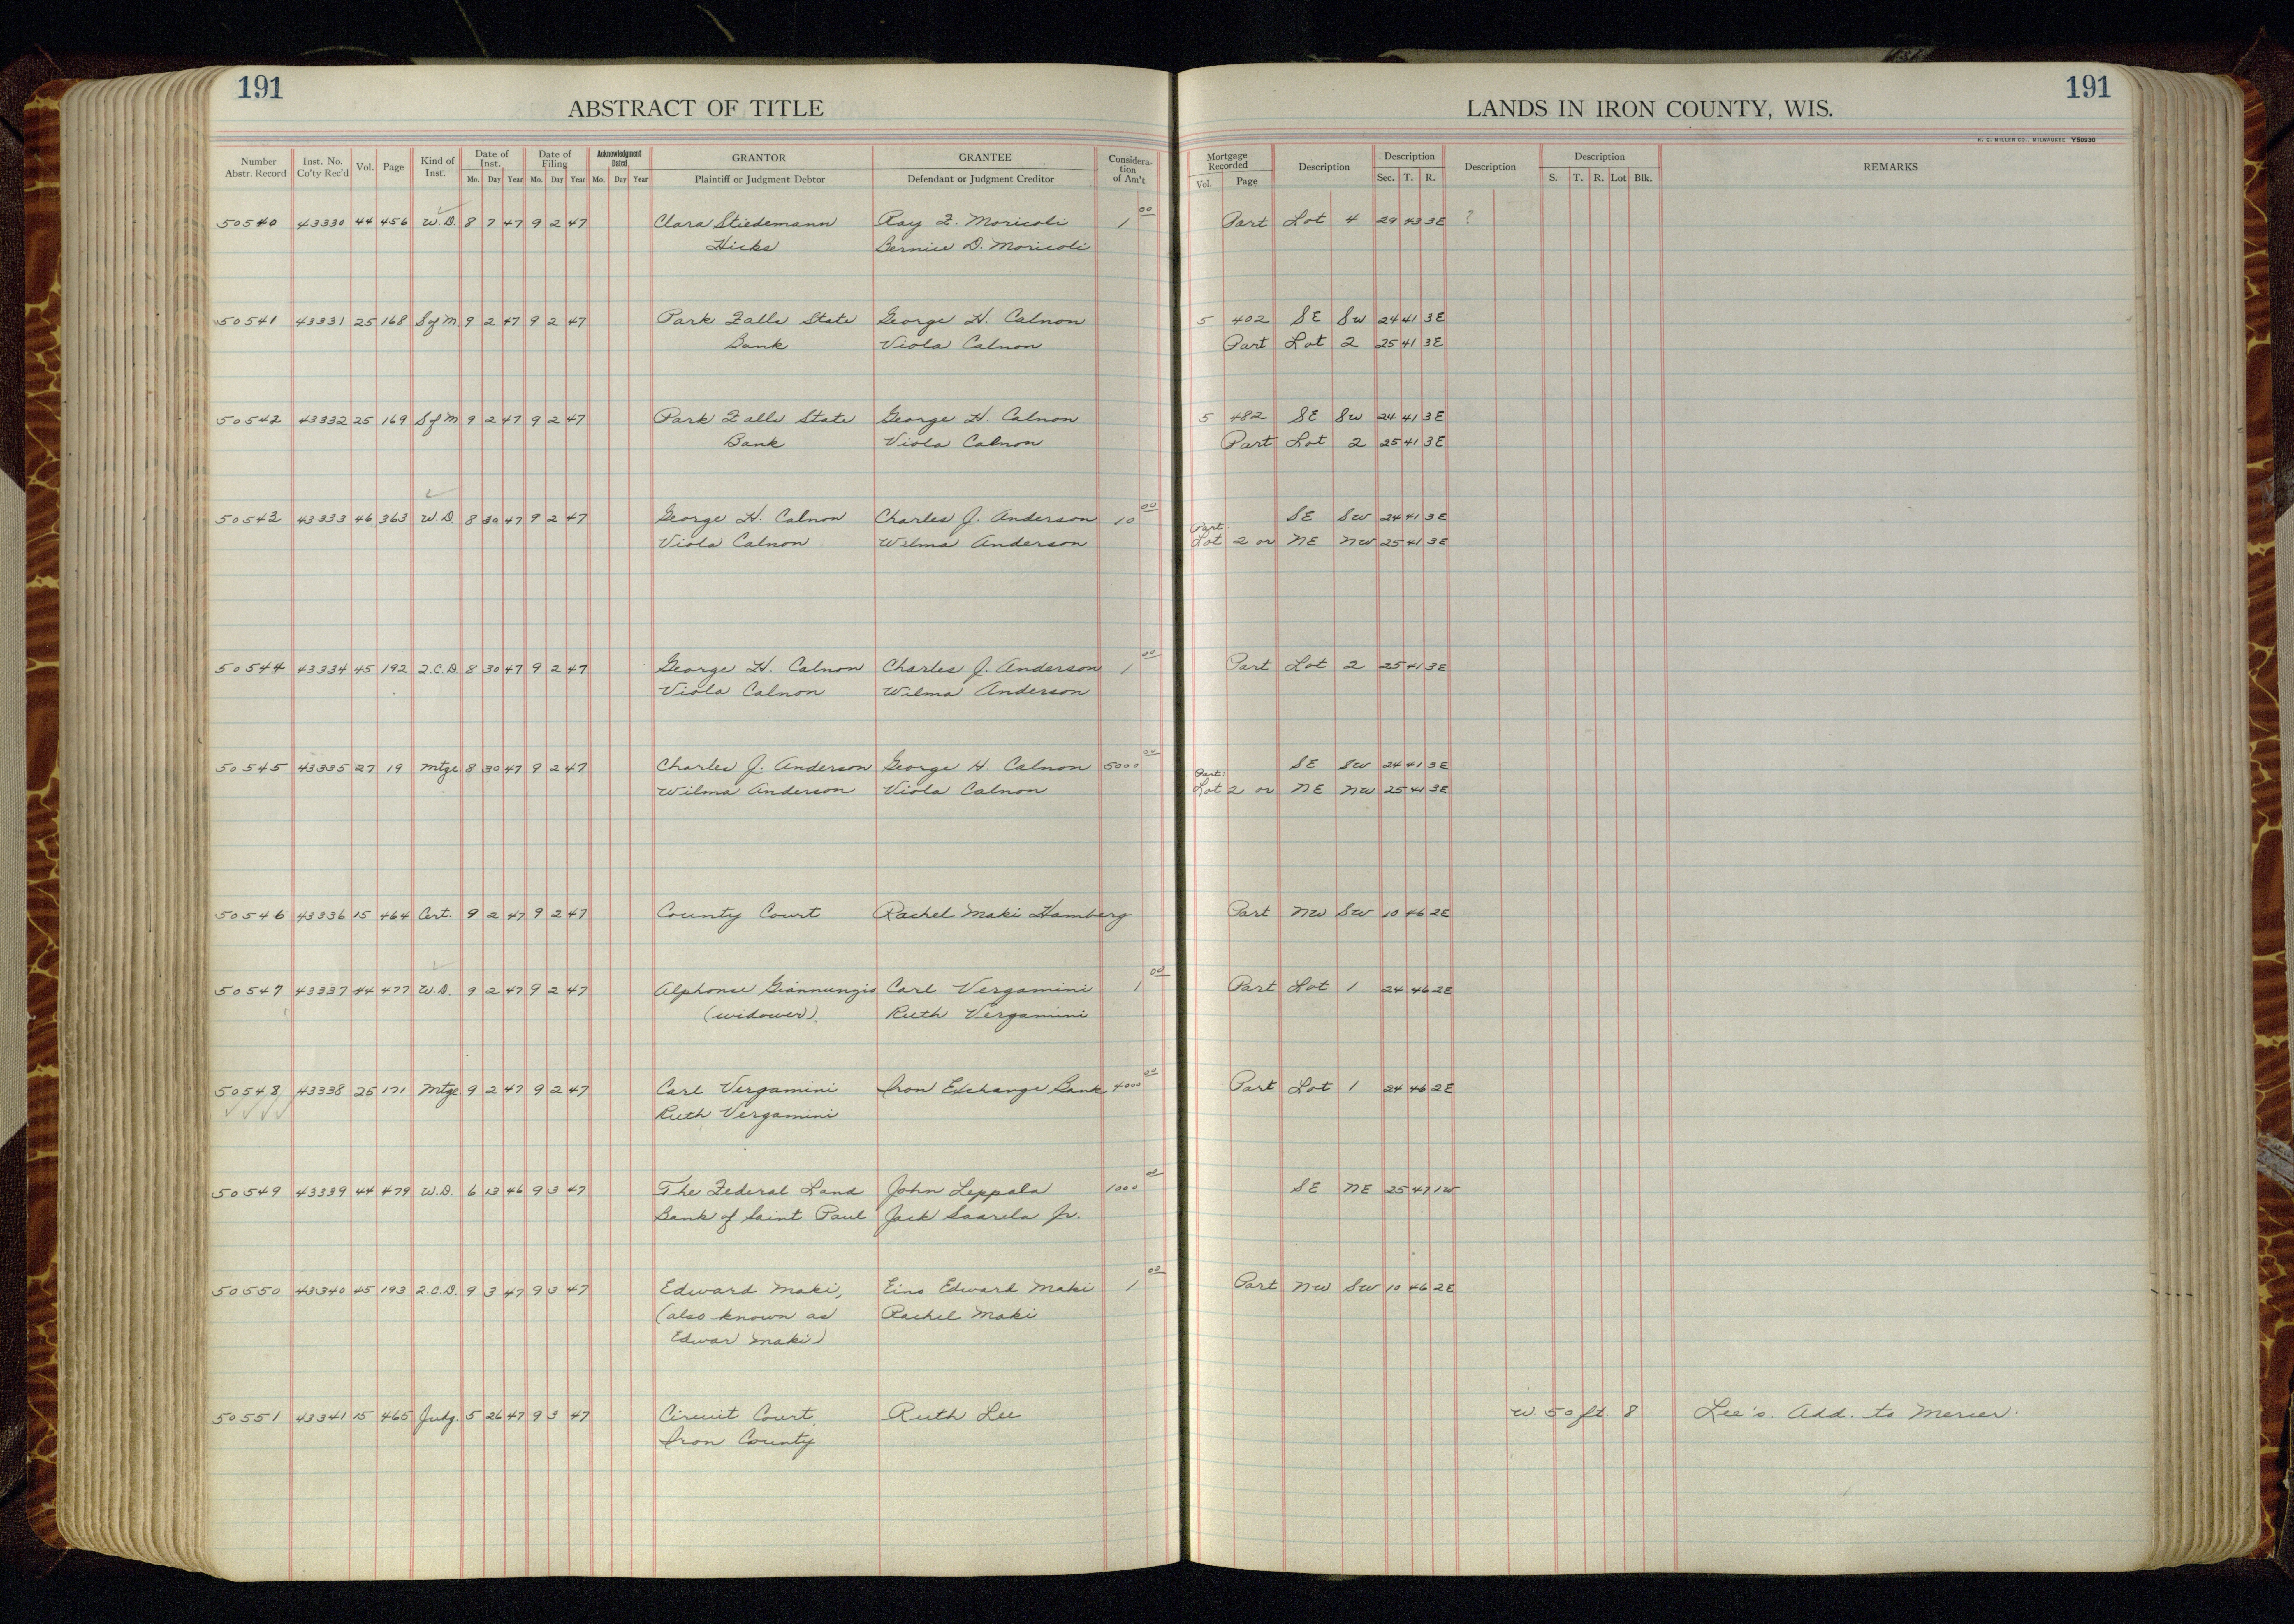 191
ABSTRACT OF TITLE
LANDS IN IRON COUNTY, WIS.
191
H. C. MILLER CO., MILWAUKEE Y50930
Number Abstr. Record Inst. No. Co'ty Rec'd Vol. Page Kind of Inst. Date of Inst. Mo. Day Year Date of Filing Mo. Day Year Acknowledgment Dated Mo. Day Year GRANTOR Plaintiff or Judgment Debtor GRANTEE Defendant or Judgment Creditor Considera- tion of Am't Mortgage Recorded Vol. Page Description Description Sec. T. R. Description Description S. T. R. Lot Blk. REMARKS
50540 43330 44 456 W.D. 8 7 47 9 2 47 Clara Stiedemann Ray F. Moricoli 1 00 Part Lot 4 29 43 3E ?
Hicks Bernice D. Moricoli
50541 43331 25 168 S of M 9 2 47 9 2 47 Park Falls State George H. Calnon 5 402 SE SW 24 41 3E
Bank Viola Calnon Part Lot 2 25 41 3E
50542 43332 25 169 S of M 9 2 47 9 2 47 Park Falls State George H. Calnon 5 482 SE SW 24 41 3E
Bank Viola Calnon Part Lot 2 25 41 3E
50543 43333 46 363 W.D. 8 30 47 9 2 47 George H. Calnon Charles J. Anderson 10 00 SE SW 24 41 3E
Viola Calnon Wilma Anderson Part: Lot 2 or NE NW 25 41 3E
50544 43334 45 192 2.C.D. 8 30 47 9 2 47 George H. Calnon Charles J. Anderson 1 00 Part Lot 2 25 41 3E
Viola Calnon Wilma Anderson
50545 43335 27 19 Mtge 8 30 47 9 2 47 Charles J. Anderson George H. Calnon 5000 00 SE SW 24 41 3E
Wilma Anderson Viola Calnon Part: Lot 2 or NE NW 25 41 3E
50546 43336 15 464 Cert. 9 2 47 9 2 47 County Court Rachel Maki Hamberg Part NW SW 10 46 2E
50547 43337 44 477 W.D. 9 2 47 9 2 47 Alphonse Giannunzio Carl Vergamini 1 00 Part Lot 1 24 46 2E
(widower). Ruth Vergamini
50548 43338 25 171 Mtge 9 2 47 9 2 47 Carl Vergamini Iron Exchange Bank 4000 00 Part Lot 1 24 46 2E
Ruth Vergamini
50549 43339 44 479 W.D. 6 13 46 9 3 47 The Federal Land John Leppala 1000 00 SE NE 25 47 1W
Bank of Saint Paul Jack Saarela Jr.
50550 43340 45 193 2.C.D. 9 3 47 9 3 47 Edward Maki, Eino Edward Maki 1 00 Part NW SW 10 46 2E
(also known as Rachel Maki
Edwar Maki)
50551 43341 15 465 Judg. 5 26 47 9 3 47 Circuit Court Ruth Lee W. 50 ft. 8 Lee's. Add. to Mercer.
Iron County